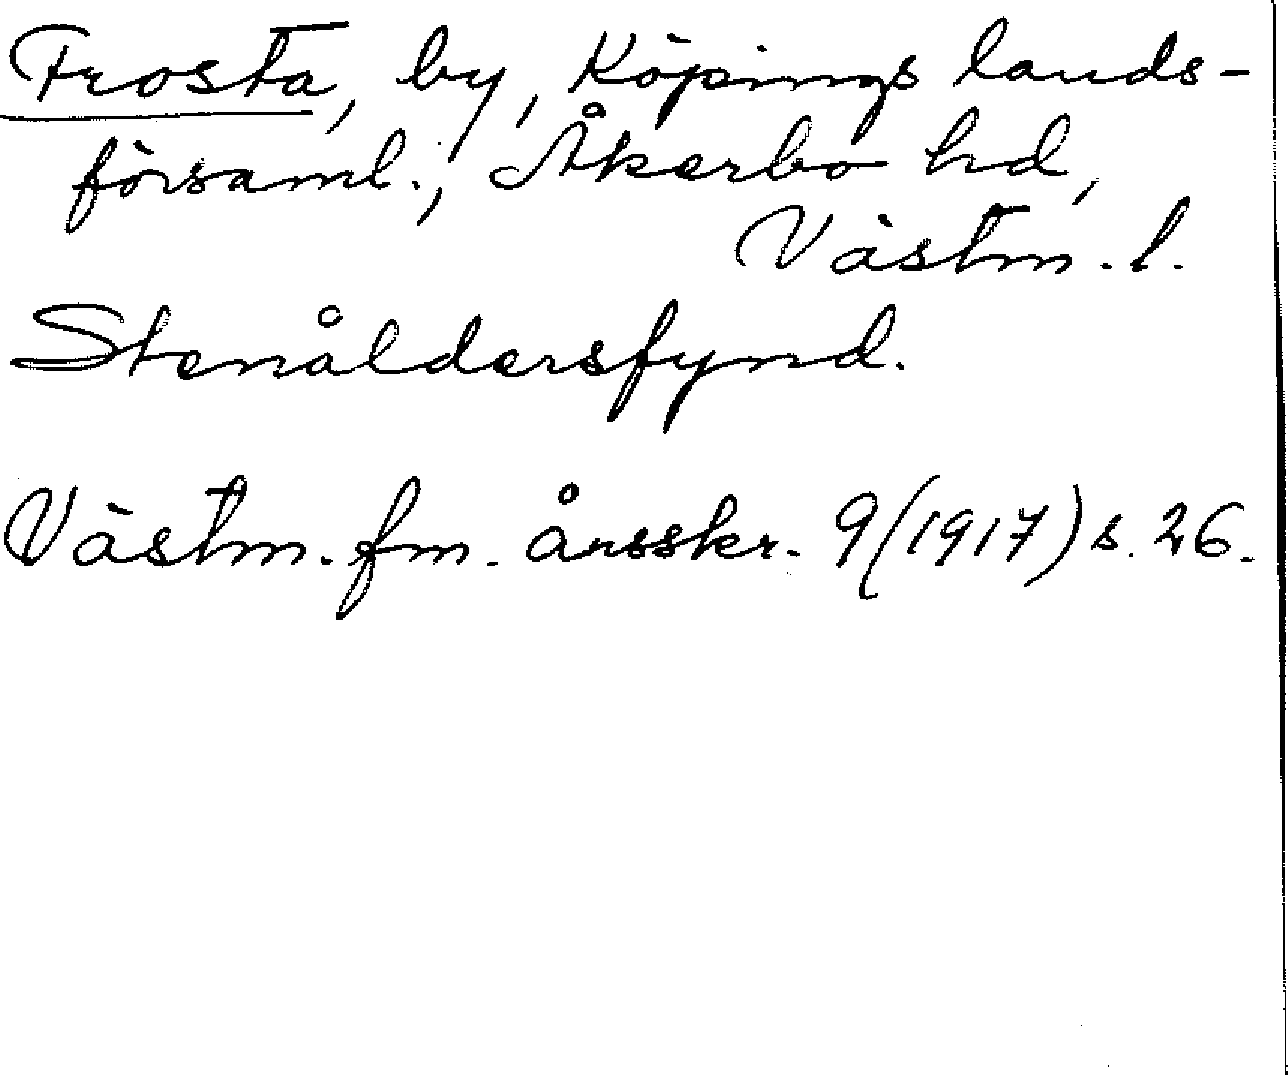 Frosta, by, Köpings lands-
församl., Åkerbo hd,
Västm. l.
Stenåldersfynd.
Västm. fm. årsskr. 9 (1917) s. 26.